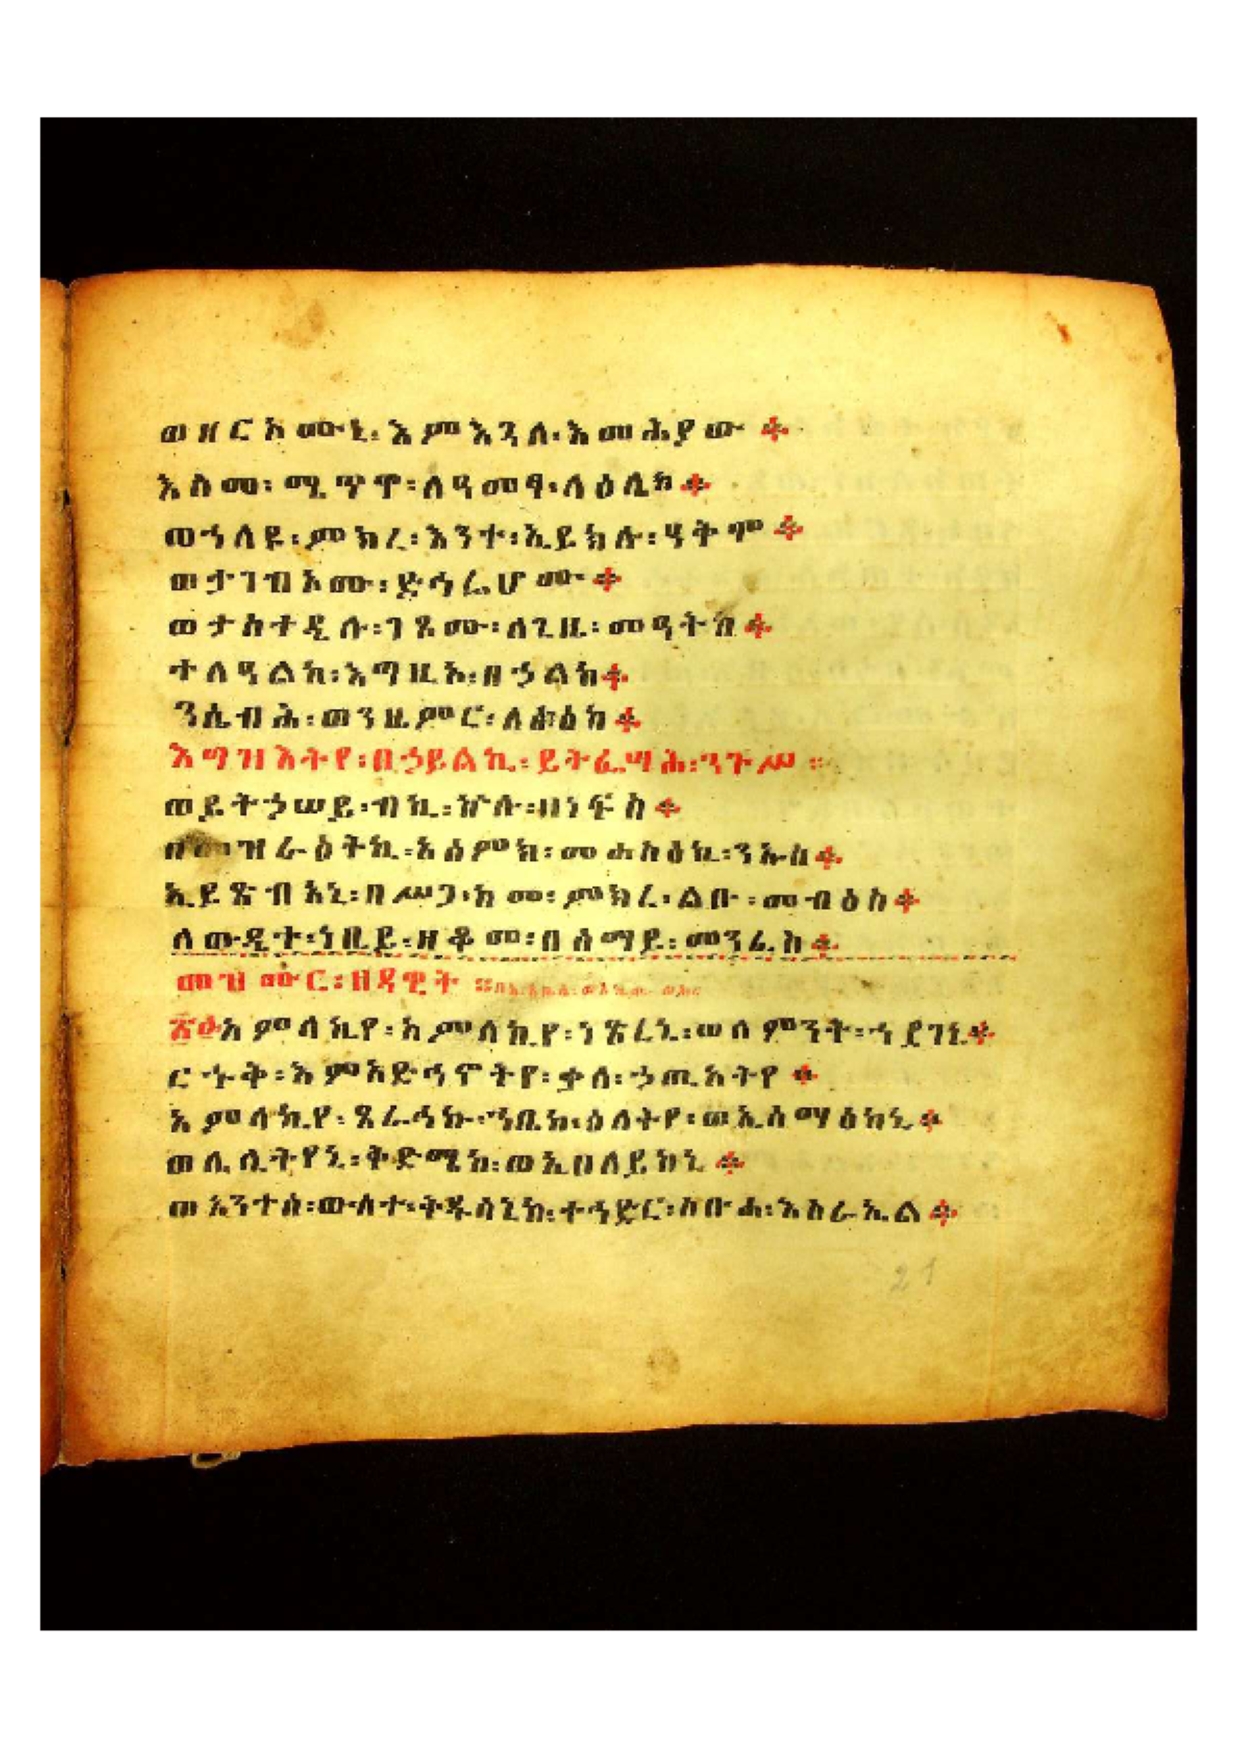 ወዘርኦሙኒ፡እምእጓለ፡እመሕያው ፨
እስመ፡ሚጥዋ፡ለዓመፃ፡ላዕሌከ ፨
ወኀለዩ፡ምክረ፡እንተ፡ኢይክሉ፡ሃትሞ ፨
ወታገብኦሙ፡ድኅሬሆሙ ፨
ወታስተዴሉ፡ገጾሙ፡ለጊዜ፡መዓትከ ፨
ተለዓልከ፡እግዚኦ፡በኃልከ ፨
ንሴብሕ፡ወንዜምር፡ለፅፅከ ፨
እግዝእትየ፡በኃይልኪ፡ይትፌሣሕ፡ንጉሥ ።
ወይትኃሠይ፡ብኪ፡ኵሉ፡ዘነፍስ ፨
ዝራዕትኪ፡አፅምክ፡ንኡስ ፨
ኢይጼብአኒ፡በሥጋ፡ከመ፡ምክረ፡ልቡ፡መብዕስ ፨
ለውዲተ፡ነቢይ፡ዘቆመ፡በሰማይ፡መንፈስ ፨
መዝሙር፡ዘዳዊት ።
፳፩አምላኪየ፡አምላኪየ፡ነጽረኒ፡ወለምንት፡ኀደገኒ ፨
ርኁቅ፡እምአድኅኖትየ፡ቃለ፡ኃጢአትየ ፨
አምላኪየ፡ጸራኅኩ፡ኀቤከ፡ዕለትየ፡ወኢሰማዕከኒ ፨
ወሌሊትየኒ፡ቅድሜከ፡ወኢበለይከኒ ፨
ወአንተሰ፡ውስተ፡ቅዱሳኒከ፡ተኀድር፡ስቡሐ፡እስራኤል ፨
21